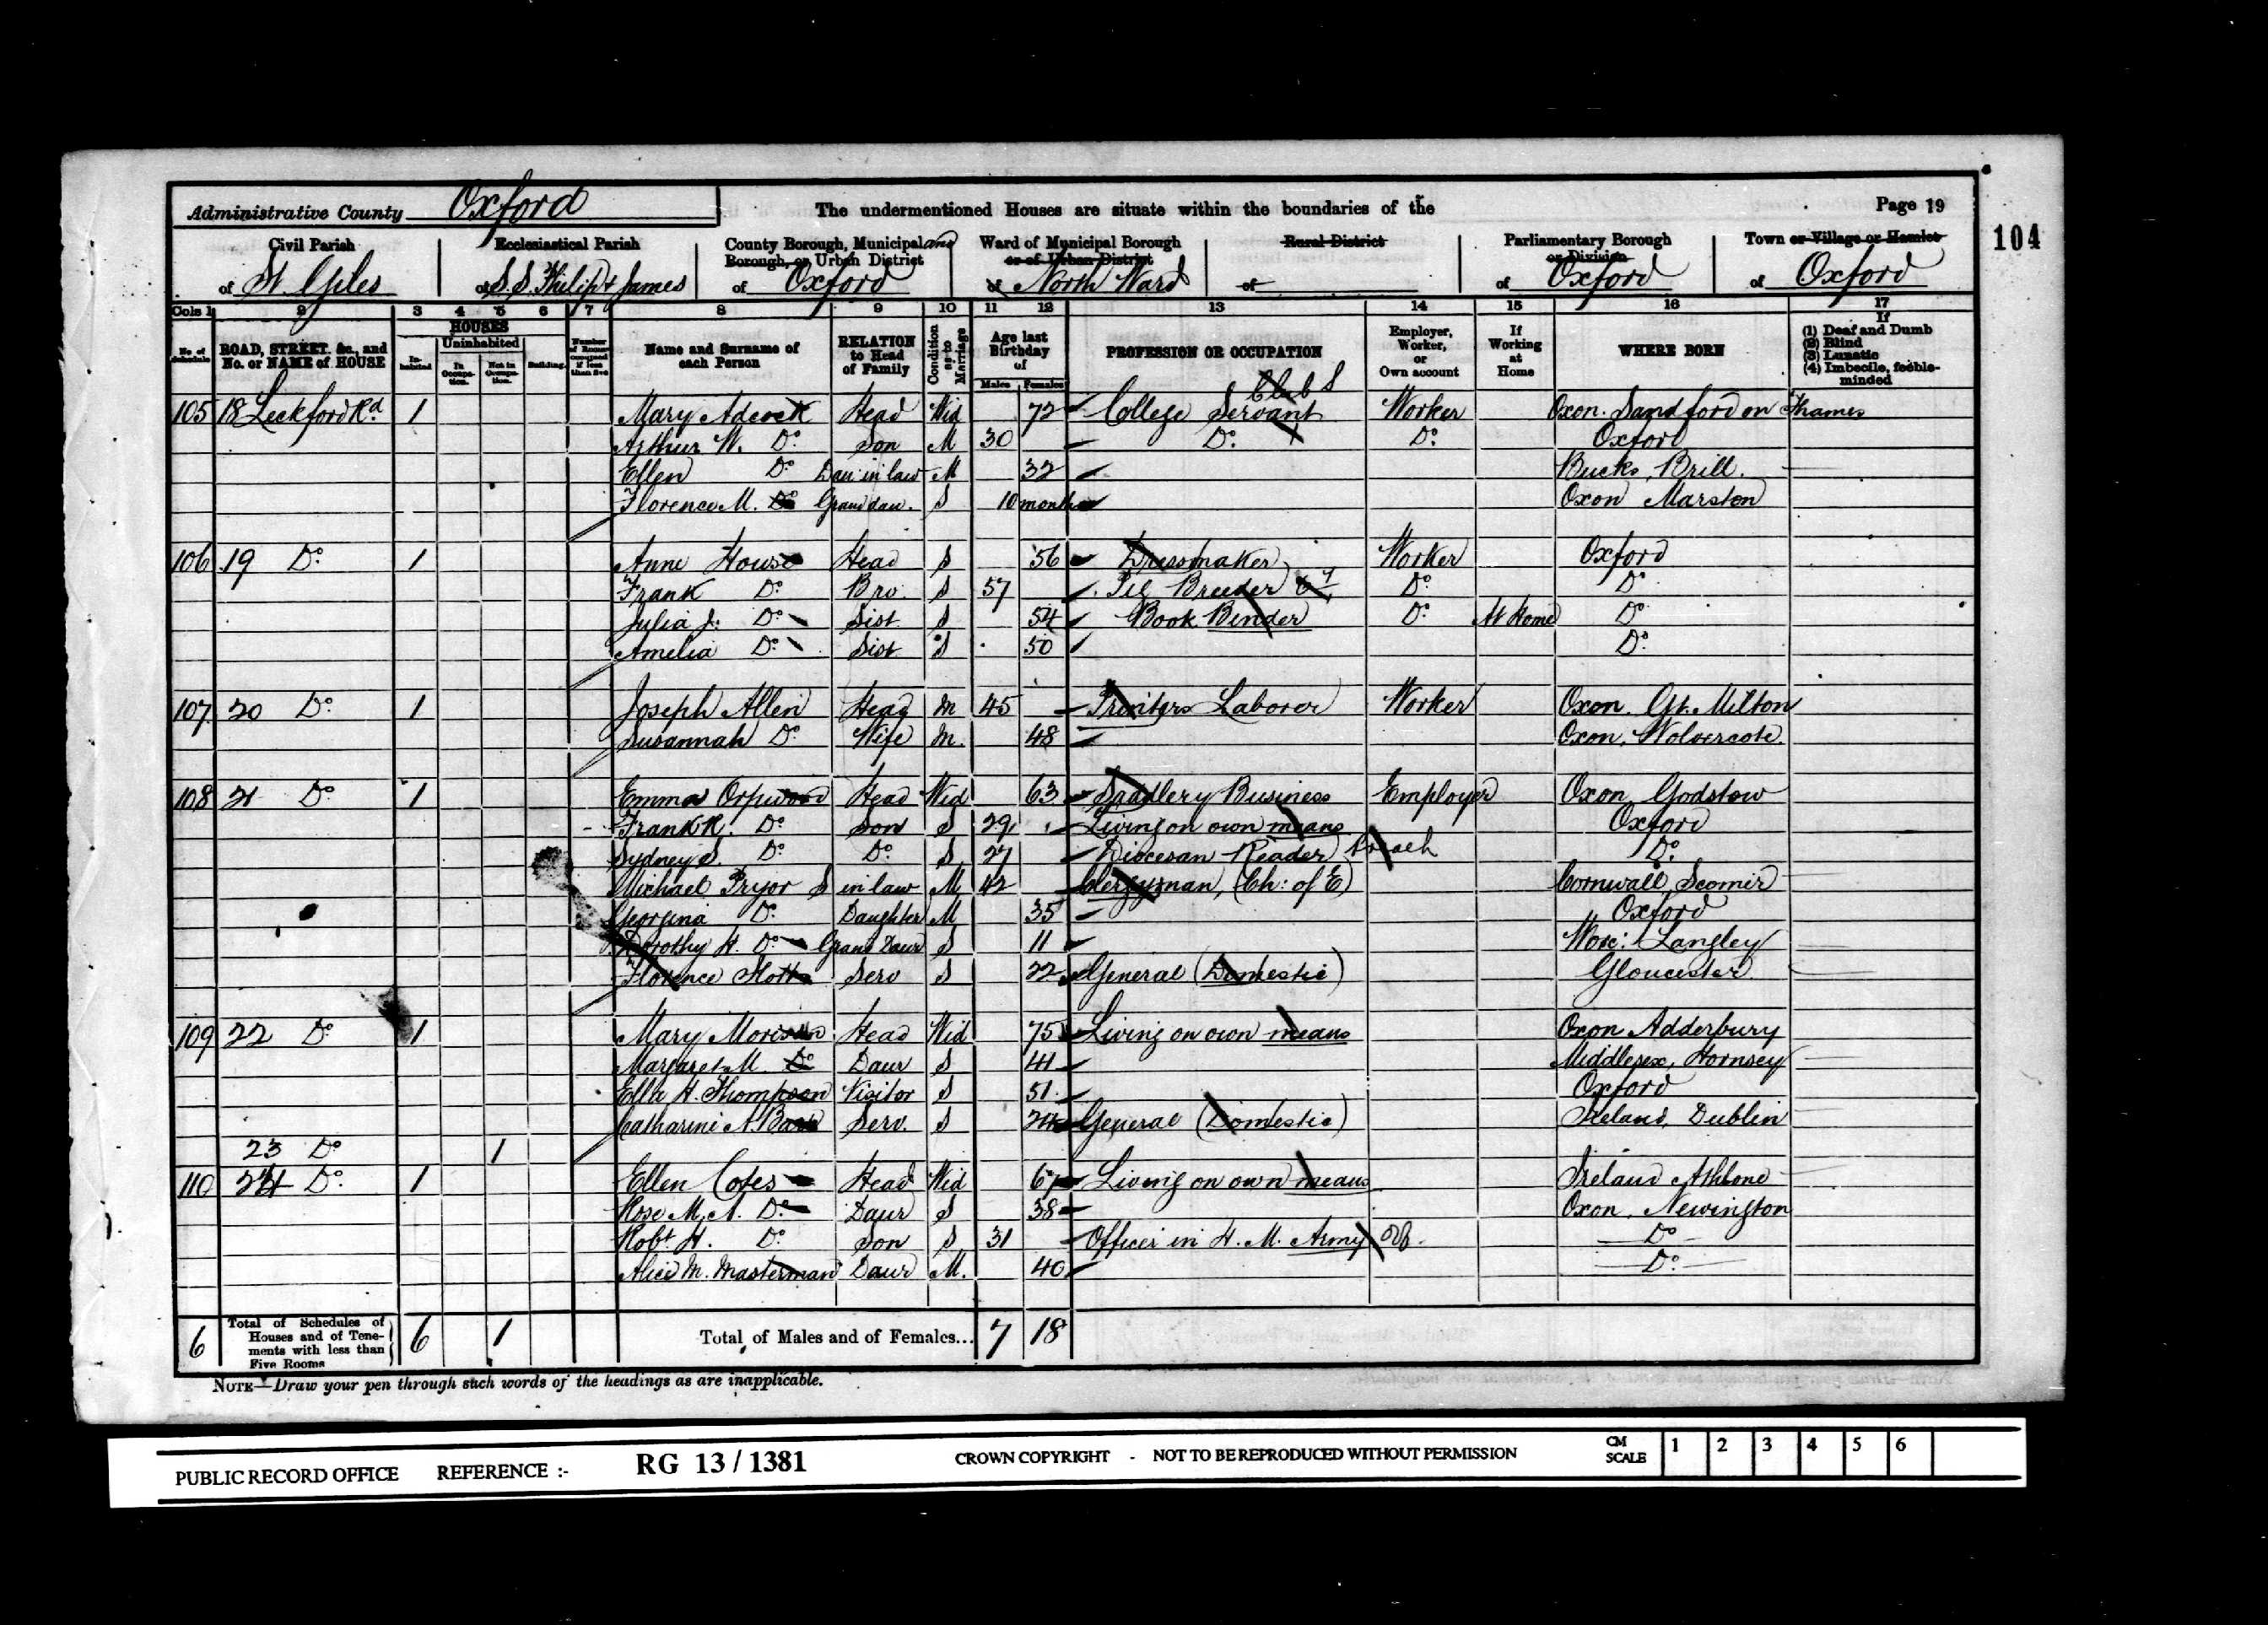 Administrative County Oxford The undermentioned Houses are situate within the boundaries of the Page 19
104
Civil Parish of St Giles
Ecclesiastical Parish of S.S. Philip & James
County Borough, Municipal and Borough, or Urban District of Oxford
Ward of Municipal Borough or of Urban District of North Ward
Rural District of
Parliamentary Borough or Division of Oxford
Town or Village or Hamlet of Oxford
Cols 1 2 3 4 5 6 7 8 9 10 11 12 13 14 15 16 17
No. of Schedule
ROAD, STREET, &c., and No. or NAME of HOUSE
HOUSES
Inhabited
Uninhabited
In Occupation.
Not in Occupation.
Building.
Number of Rooms occupied if less than five
Name and Surname of each Person
RELATION to Head of Family
Condition as to Marriage
Age last Birthday of
Males Females
PROFESSION OR OCCUPATION
Employer, Worker, or Own account
If Working at Home
WHERE BORN
If
(1) Deaf and Dumb
(2) Blind
(3) Lunatic
(4) Imbecile, feeble-minded
105 18 Leckford Rd. 1 Mary Adcock Head Wid 72 College Servant Worker Oxon. Sandford on Thames
Arthur W. Do. Son M 30 Do. Do. Oxford
Ellen Do Dau in law M 32 Bucks, Brill.
Florence M. Do Grand dau. S 10 months Oxon Marston
106 19 Do. 1 Anne House Head S 56 Dressmaker Worker Oxford
Frank Do. Bro. S 57 Pig Breeder Do. Do.
Julia J. Do. Sist. S 54 Book Binder Do. At Home Do.
Amelia Do. Sist. S 50 Do.
107 20 Do. 1 Joseph Allen Head M 45 Printers Laborer Worker Oxon. Gt. Milton
Susannah Do. Wife M. 48 Oxon, Wolvercote.
108 21 Do. 1 Emma Orpwood Head Wid 63 Saddlery Business Employer Oxon Godstow
Frank R. Do. Son S 29 Living on own means Oxford
Sydney S. Do. Do. S 27 Diocesan Reader Do.
Michael Pryor S in law M 42 Clergyman, (Ch: of E) Cornwall,
Georgina Do. Daughter M 35 Oxford
Dorothy H. Do. Grand Daur S 11 Worc: Langley
Florence Serv S 22 General (Domestic) Gloucester
109 22 Do. 1 Mary Head Wid 75 Living on own means Oxon Adderbury
Margaret M Do Daur S 41 Middlesex, Hornsey
Ella H. Thompson Visitor S 51 Oxford
Catharine A. Serv. S 24 General (Domestic) Ireland, Dublin
23 Do. 1
110 24 Do. 1 Ellen Cotes Head Wid 67 Living on own means Ireland Athlone
Rose M. A. Do. Daur S 38 Oxon, Newington
Robt H. Do. Son S 31 Officer in H. M. Army Do
Alice M. Masterman Daur M. 40 Do.
6 Total of Schedules of Houses and of Tenements with less than Five Rooms 6 1 Total of Males and of Females... 7 18
NOTE—Draw your pen through such words of the headings as are inapplicable.
PUBLIC RECORD OFFICE REFERENCE :- RG 13 / 1381 CROWN COPYRIGHT - NOT TO BE REPRODUCED WITHOUT PERMISSION CM SCALE 1 2 3 4 5 6